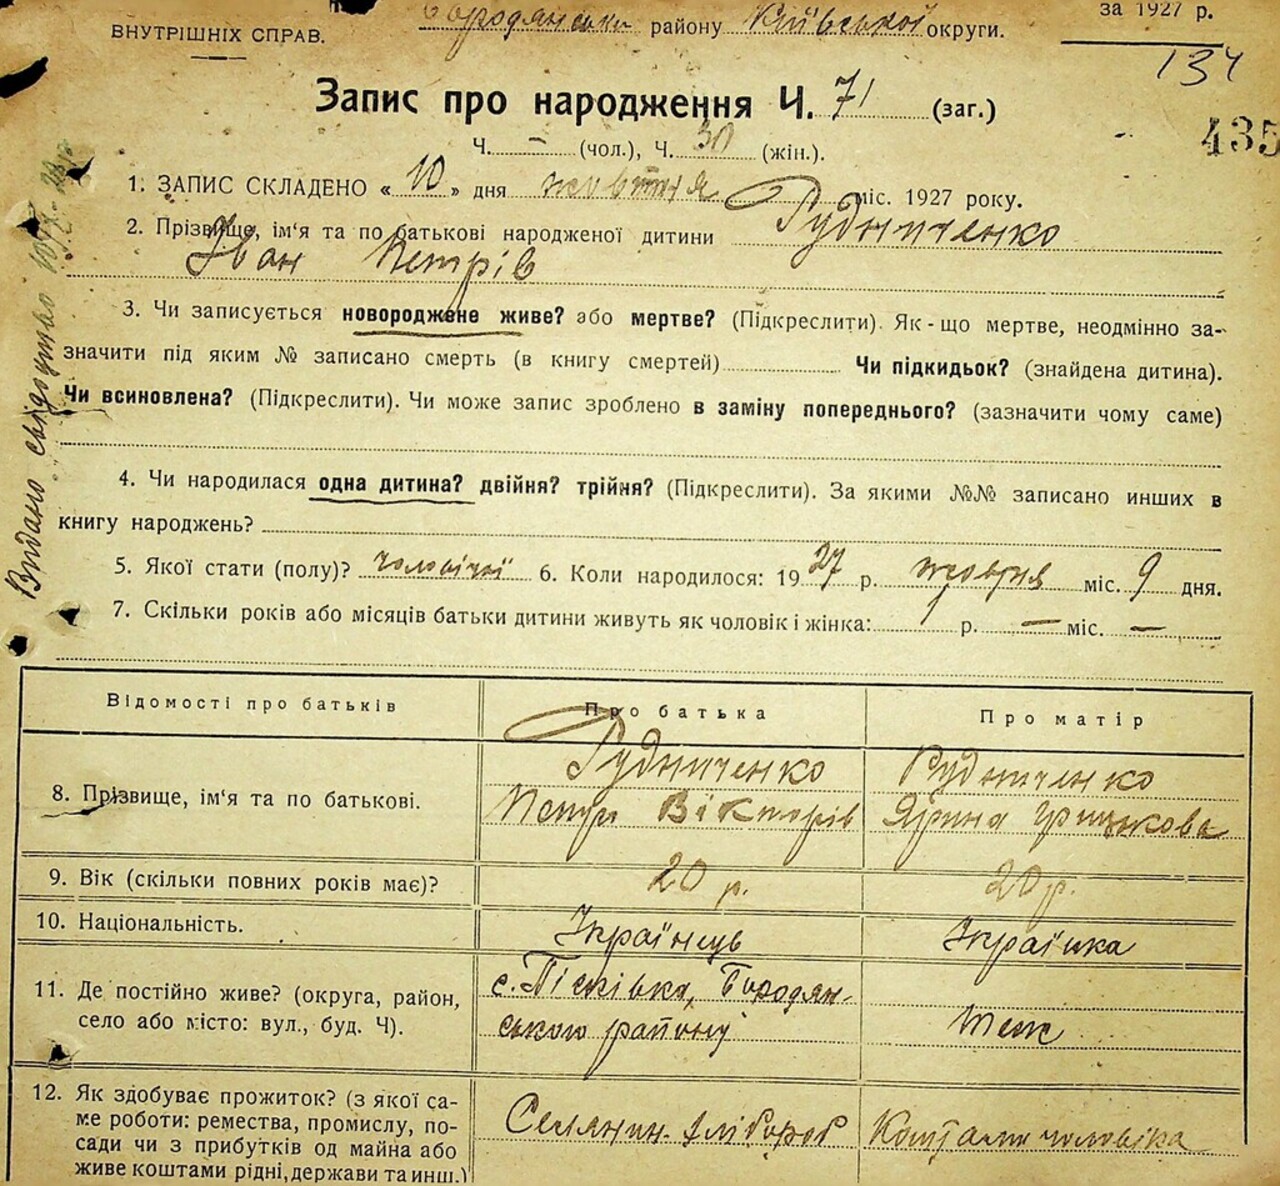 ВНУТРІШНІХ СПРАВ.
Бородянськ району Київської округи.
за 1927 р.
134
435
Запис про народження Ч. 71 (заг.)
Ч. — (чол.), Ч. 30 (жін.).
1. ЗАПИС СКЛАДЕНО « 10 » дня жовтня міс. 1927 року.
2. Прізвище, ім'я та по батькові народженої дитини Рудниченко
Іван Петрів
3. Чи записується новороджене живе? або мертве? (Підкреслити). Як-що мертве, неодмінно за-
значити під яким № записано смерть (в книгу смертей) Чи підкидьок? (знайдена дитина).
Чи всиновлена? (Підкреслити). Чи може запис зроблено в заміну попереднього? (зазначити чому саме)
4. Чи народилася одна дитина? двійня? трійня? (Підкреслити). За якими №№ записано инших в
книгу народжень?
5. Якої стати (полу)? чоловічої 6. Коли народилося: 1927 р. жовтня міс. 9 дня.
7. Скільки років або місяців батьки дитини живуть як чоловік і жінка: 1 р. — міс. —
Видано свідоцтво
Відомості про батьків Про батька Про матір
8. Прізвище, ім'я та по батькові. Рудниченко Рудниченко
Петро Вікторів Ярина Грицькова
9. Вік (скільки повних років має)? 20 р. 20 р.
10. Національність. Українець Українка
11. Де постійно живе? (округа, район, с. Пісківка, Бородян-
село або місто: вул., буд. Ч). ського району Теж
12. Як здобуває прожиток? (з якої са- Селянин-хлібороб Коштами чоловіка
ме роботи: ремества, промислу, по-
сади чи з прибутків од майна або
живе коштами рідні, держави та инш.)